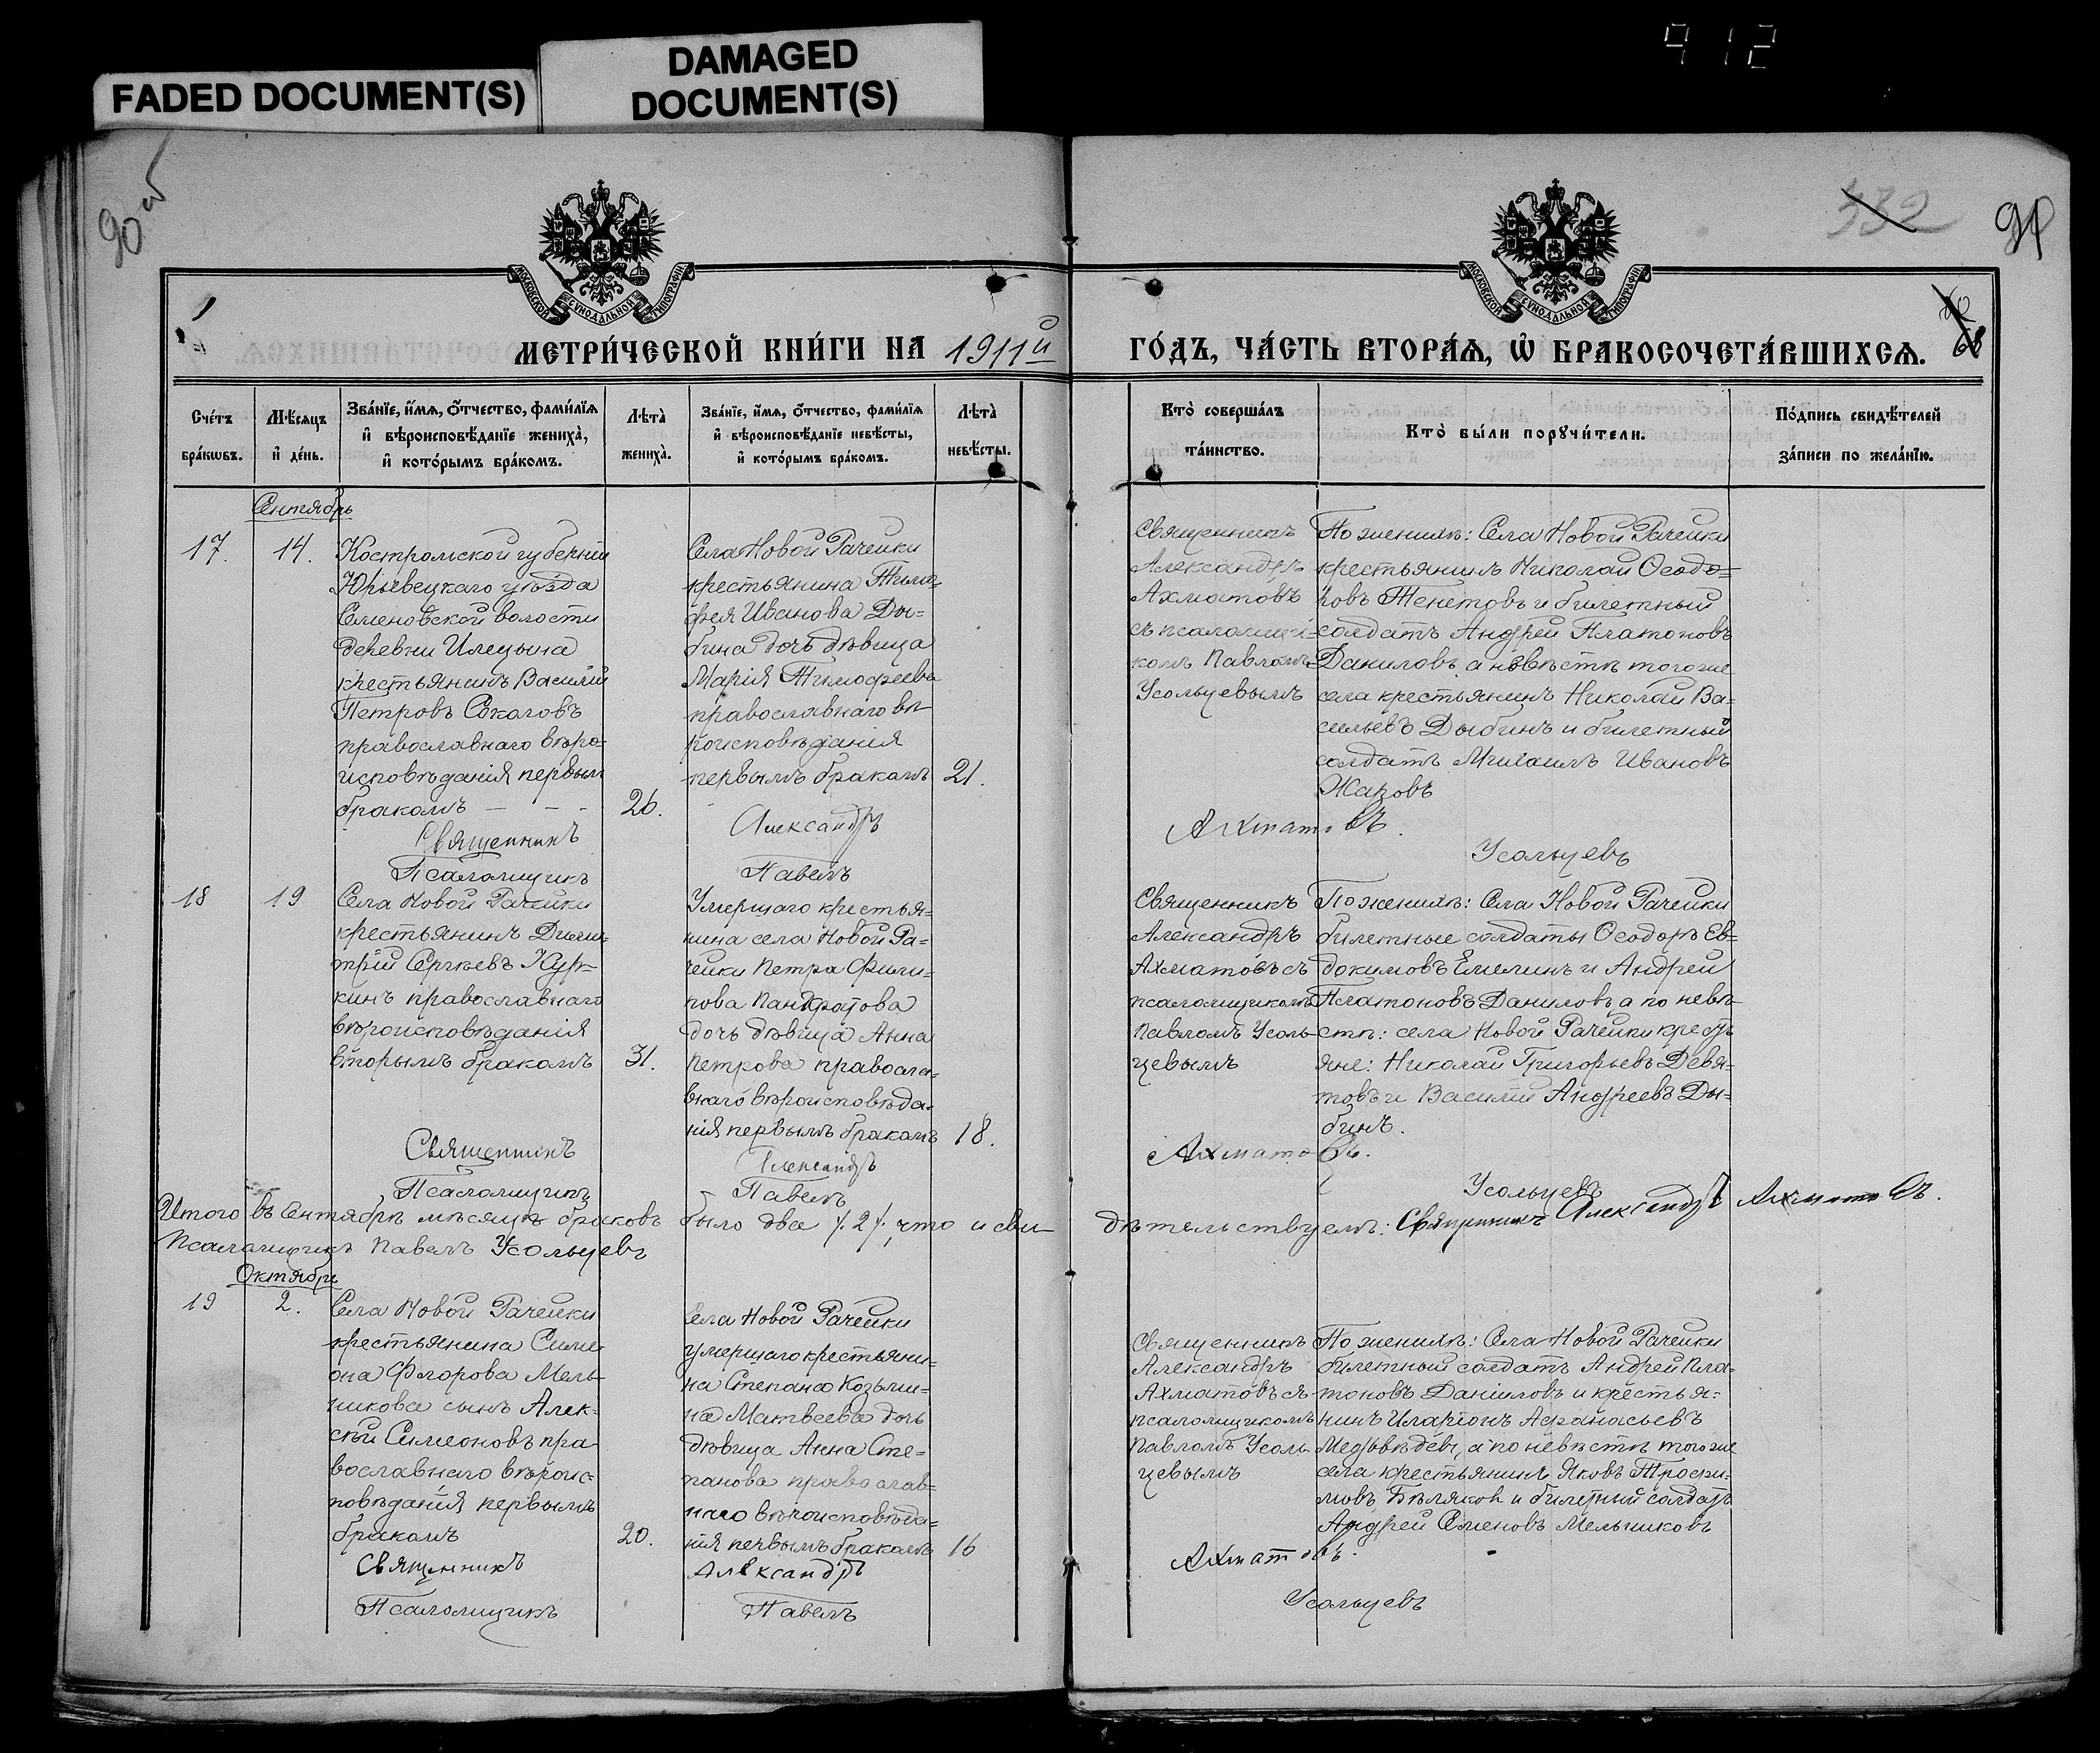 FADED DOCUMENT(S)
DAMAGED
DOCUMENT(S)
912
90 об
332
91
68
МОСКОВСКОЙ СѴНОДАЛЬНОЙ ТИПОГРАФІИ
МОСКОВСКОЙ СѴНОДАЛЬНОЙ ТИПОГРАФІИ
МЕТРИ́ЧЕСКОЙ КНИ́ГИ НА 1911й
ГО́ДЪ, ЧА́СТЬ ВТОРА́Ѧ, Ѡ҆ БРАКОСОЧЕТА́ВШИХСѦ.
Сче́тъ
бра́кѡвъ.
Мѣ́сяцъ
и҆ де́нь.
Зва́нїе, и҆́мѧ, ѻ҆́тчество, фами́лїѧ
и҆ вѣроисповѣ́данїе жениха̀,
и҆ кото́рымъ бра́комъ.
Лѣта̀
жениха̀.
Зва́нїе, и҆́мѧ, ѻ҆́тчество, фами́лїѧ
и҆ вѣроисповѣ́данїе невѣ́сты,
и҆ кото́рымъ бра́комъ.
Лѣта̀
невѣ́сты.
Кто̀ соверша́лъ
та́инство.
Кто̀ бы́ли порꙋчи́тели.
По́дпись свидѣ́телей
за́писи по жела́нїю.
Сентябрь
17.
14.
Костромской губерніи
Юрьевецкаго уѣзда
Семеновской волости
деревни Илецына
крестьянинъ Василій
Петровъ Соколовъ
православнаго вѣро=
исповѣданія первымъ
бракомъ — - -
26.
Села Новой Рачейки
крестьянина Тимо=
фея Иванова Ды=
бина дочь дѣвица
Марія Тимофеева
православнаго вѣ
роисповѣданія
первымъ бракомъ
21.
Священникъ
Александръ
Ахматовъ
съ псаломщи=
комъ Павломъ
Усольцевымъ
По женихѣ: Села Новой Рачейки
крестьянинъ Николай Ѳеодо=
ровъ Тенетовъ и билетный
солдатъ Андрей Платоновъ
Даниловъ, а невѣстѣ того же
села крестьянинъ Николай Ва=
сильевъ Дыбинъ и билетный
солдатъ Михаилъ Ивановъ
Жаровъ
Священникъ Александръ Ахматовъ.
Псаломщикъ Павелъ Усольцевъ
18
19
Села Новой Рачейки
крестьянинъ Дими=
трій Сергѣевъ Кур=
кинъ православнаго
вѣроисповѣданія
вторымъ бракомъ
31.
Умершаго крестья=
нина села Новой Ра=
чейки Петра Фили=
пова Панфатова
дочь дѣвица Анна
Петрова правосла=
внаго вѣроисповѣда=
нія первымъ бракомъ
18.
Священникъ
Александръ
Ахматовъ съ
псаломщикомъ
Павломъ Усоль
цевымъ
По женихѣ: Села Новой Рачейки
билетные солдаты Ѳеодоръ Ев=
докимовъ Емелинъ и Андрей
Платоновъ Даниловъ, а по невѣ
стѣ: села Новой Рачейки кресть
яне: Николай Григорьевъ Девя=
товъ и Василій Андреевъ Ды=
бинъ.
Священникъ Александръ Ахматовъ.
Псаломщикъ Павелъ Усольцевъ
Итого въ Сентябрѣ мѣсяцѣ браковъ было два /.2/., что и сви дѣтельствуемъ: Священникъ Александръ Ахматовъ.
Псаломщикъ Павелъ Усольцевъ
Октябрь
19
2.
Села Новой Рачейки
крестьянина Симе
она Флорова Мель
никова сынъ Алек=
сѣй Симеоновъ пра
вославнаго вѣроис=
повѣданія первымъ
бракомъ
20.
Села Новой Рачейки
умершаго крестьяни=
на Степана Козьми=
на Матвеева дочь
дѣвица Анна Сте=
панова православ=
наго вѣроисповѣда=
нія первымъ бракомъ
16
Священникъ
Александръ
Ахматовъ съ
псаломщикомъ
Павломъ Усоль
цевымъ
По женихѣ: Села Новой Рачейки
билетный солдатъ Андрей Пла=
тоновъ Даниловъ и крестья=
нинъ Иларіонъ Афанасьевъ
Медвѣдевъ, а по невѣстѣ того же
села крестьянинъ Яковъ Трофи=
мовъ Бѣляковъ и билетный солдатъ
Андрей Семеновъ Мельниковъ
Священникъ Александръ Ахматовъ.
Псаломщикъ Павелъ Усольцевъ